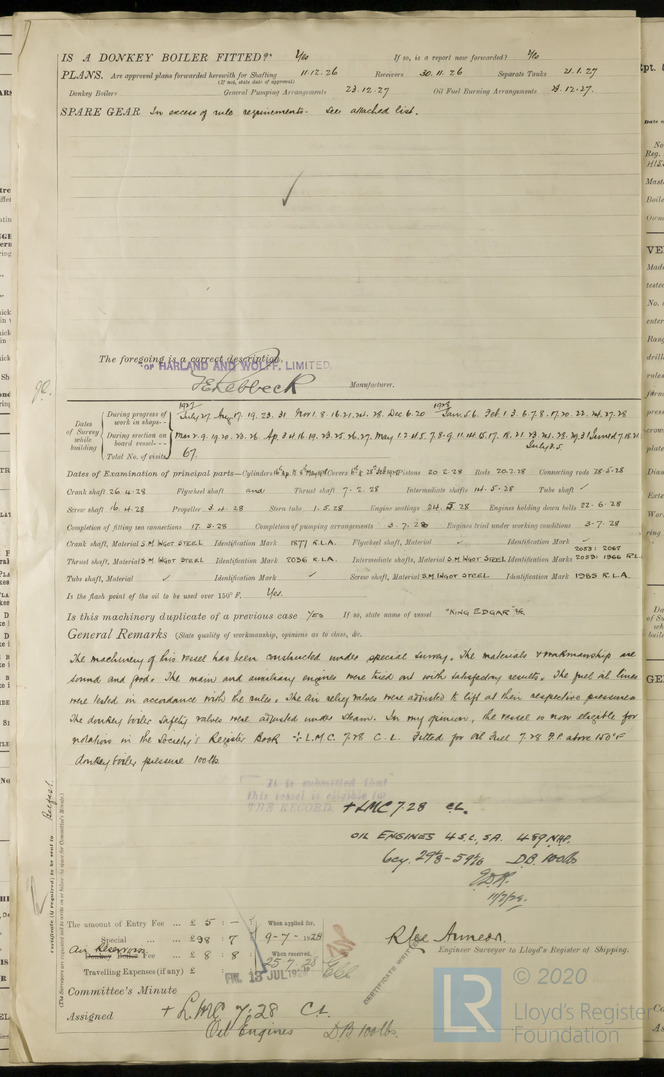 IS A DONKEY BOILER FITTED? Yes If so, is a report now forwarded? Yes
PLANS. Are approved plans forwarded herewith for Shafting 11.12.26 Receivers 30.11.26 Separate Tanks 21.1.27
(If not, state date of approval)
Donkey Boilers General Pumping Arrangements 23.12.27 Oil Fuel Burning Arrangements 23.12.27.
SPARE GEAR In excess of rule requirements. See attached list.
The foregoing is a correct description,
For HARLAND AND WOLFF, LIMITED,
Manufacturer.
Dates of Survey while building
1927 1928
During progress of work in shops-- July 27 Aug 17. 19. 23. 31 Nov 1. 8. 16. 21. 24. 28. Dec 6. 20 Jan. 5. 6. Feb 1. 3. 6. 7. 8. 17. 20. 22. 24. 27. 28
During erection on board vessel--- Mar 2. 9. 19. 20. 23. 26. Ap. 3. 4. 16. 19. 23. 25. 26. 27. May 1. 2. 4. 5. 7. 8. 9. 11. 14. 15. 17. 18. 21. 23. 24. 28. 29. 31 June 4. 7. 18. 21
July 3. 5.
Total No. of visits 67.
Dates of Examination of principal parts—Cylinders Covers Pistons 20.2.28 Rods 20.2.28 Connecting rods 28.5.28
Crank shaft 26.4.28 Flywheel shaft and Thrust shaft 7.2.28 Intermediate shafts 14.5.28 Tube shaft ✓
Screw shaft 16.4.28 Propeller 3.4.28 Stern tube 1.5.28 Engine seatings 24.5.28 Engines holding down bolts 22.6.28
Completion of fitting sea connections 17.3.28 Completion of pumping arrangements 3.7.28 Engines tried under working conditions 3.7.28
Crank shaft, Material S.M. INGOT STEEL Identification Mark 1877 R.L.A. Flywheel shaft, Material ✓ Identification Mark ✓
2053: 2067
Thrust shaft, Material S.M. INGOT STEEL Identification Mark 2036 R.L.A. Intermediate shafts, Material S.M. INGOT STEEL Identification Marks 2059: 1966 R.L.
Tube shaft, Material ✓ Identification Mark ✓ Screw shaft, Material S.M. INGOT STEEL Identification Mark 1985 R.L.A.
Is the flash point of the oil to be used over 150° F. Yes.
Is this machinery duplicate of a previous case Yes If so, state name of vessel "KING EDGAR"
General Remarks (State quality of workmanship, opinions as to class, &c.
The machinery of this vessel has been constructed under special survey. The materials & workmanship are
sound and good. The main and auxiliary engines were tried out with satisfactory results. The fuel oil lines
were tested in accordance with the rules. The air relief valves were adjusted to lift at their respective pressures.
The donkey boiler safety valves were adjusted under steam. In my opinion, the vessel is now eligible for
notation in the Society's Register Book + L.M.C. 7.28 C.L. Fitted for Oil Fuel 7.28 F.P. above 150°F
donkey boiler pressure 100 lb
It is submitted that
this vessel is eligible for
THE RECORD.
+ LMC 7.28 CL.
OIL ENGINES 4 S.C. S.A. 489 NHP.
6cy. D.B. 100lb
11/7/28.
The amount of Entry Fee ... £ 5 : - When applied for,
Special ... £98 : 7 9-7-1928
Air Reservoirs
Donkey Boiler Fee ... £ 8 : 8 When received,
Travelling Expenses (if any) £ 25.7.28
Engineer Surveyor to Lloyd's Register of Shipping.
Committee's Minute FRI. 13 JUL 1928
Assigned + L.M.C. 7:28 CL.
Oil Engines D.B 100lbs.
CERTIFICATE WRITTEN
Certificate (if required) to be sent to Belfast.
(The Surveyors are requested not to write on or below the space for Committee's Minute.)
© 2020
LR
Lloyd's Register
Foundation